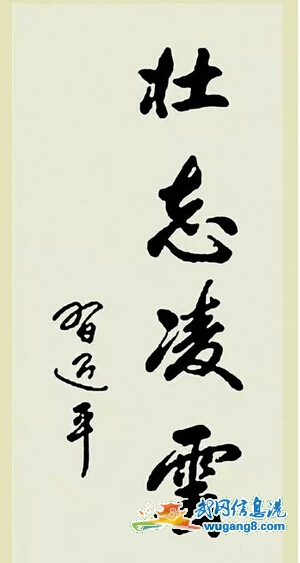 壮志凌雲
習近平
武冈信息港
wugang8.com